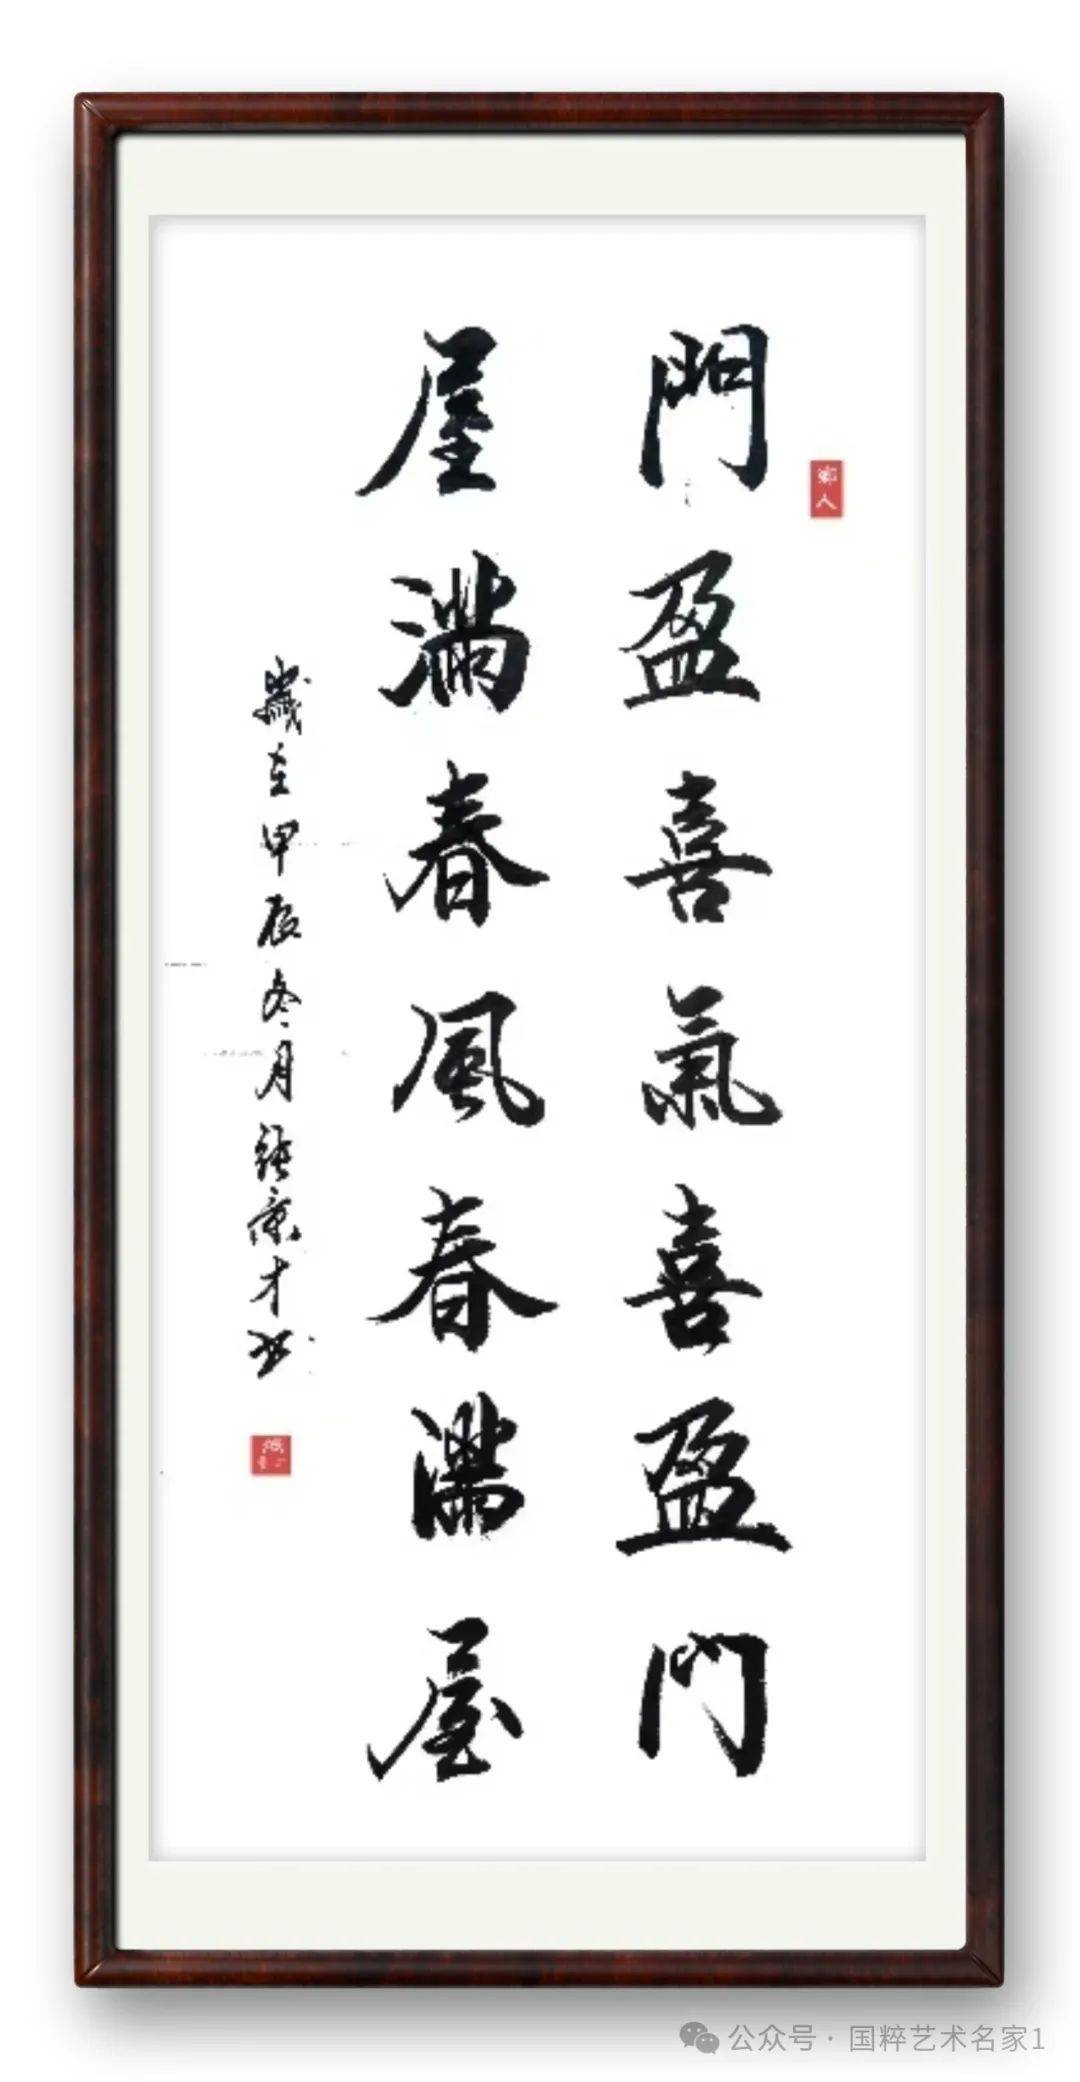 門盈喜氣喜盈門
屋滿春風春滿屋
歲在甲辰冬月張景才書
鄉人
公众号 · 国粹艺术名家1